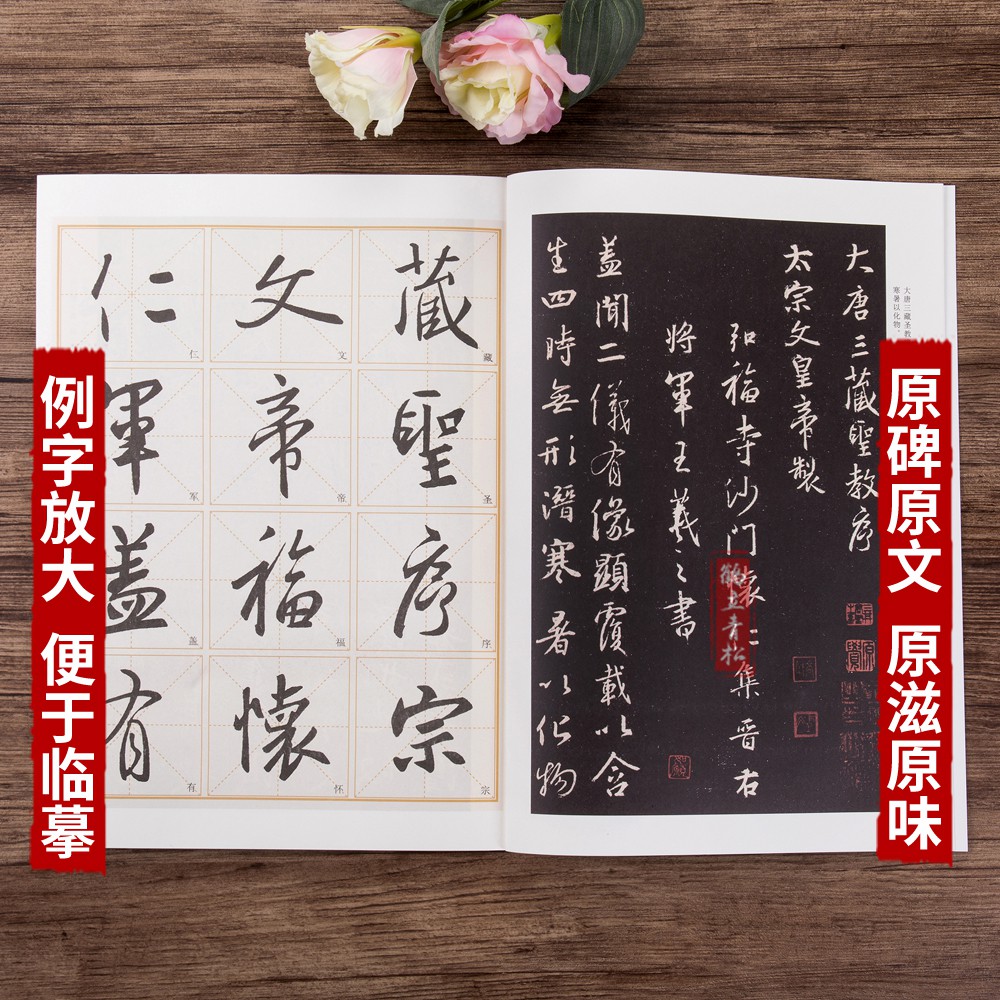 例字放大 便于临摹
原碑原文 原滋原味
大唐三藏聖教序
太宗文皇帝製
弘福寺沙门懷仁集晋右
将軍王羲之書
盖聞二儀有像顯覆載以含
生四時無形潛寒暑以化物
大唐三藏圣教
寒暑以化物。
藏 文 仁
藏 文 仁
聖 帝 軍
圣 帝 军
序 福 盖
序 福 盖
宗 懷 有
宗 怀 有